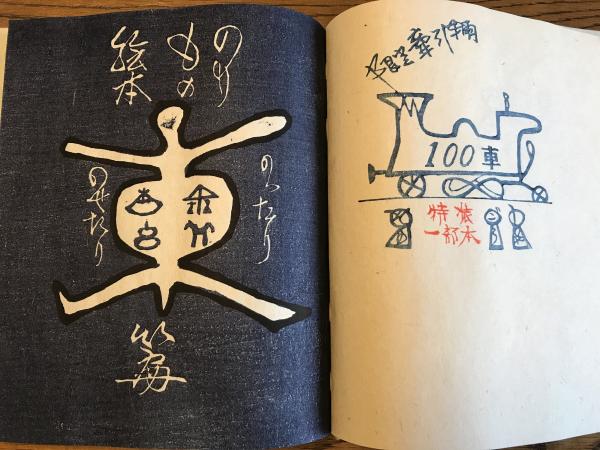 のり
もの
絵本
車
のったり
のせたり
牽引
100車
特装
一部本